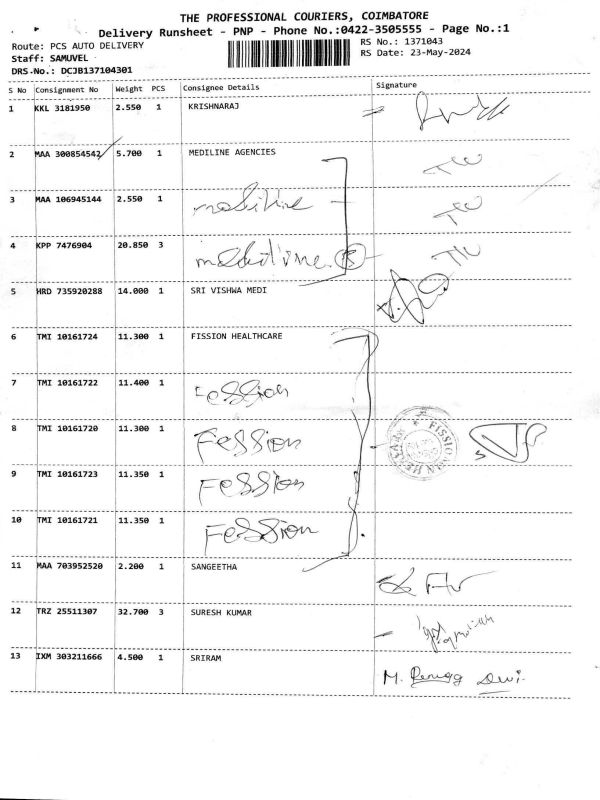 THE PROFESSIONAL COURIERS, COIMBATORE
Delivery Runsheet - PNP - Phone No.:0422-3505555 - Page No.:1
Route: PCS AUTO DELIVERY
RS No.: 1371043
Staff: SAMUVEL
RS Date: 23-May-2024
DRS-No.: DCJB137104301
S No Consignment No Weight PCS Consignee Details Signature
1 KKL 3181950 2.550 1 KRISHNARAJ
2 MAA 300854542 5.700 1 MEDILINE AGENCIES
3 MAA 106945144 2.550 1
4 KPP 7476904 20.850 3
5 HRD 735920288 14.000 1 SRI VISHWA MEDI
6 TMI 10161724 11.300 1 FISSION HEALTHCARE
7 TMI 10161722 11.400 1 Fession
8 TMI 10161720 11.300 1 Fession
9 TMI 10161723 11.350 1 Fession
10 TMI 10161721 11.350 1 Fession
11 MAA 703952520 2.200 1 SANGEETHA
12 TRZ 25511307 32.700 3 SURESH KUMAR
13 IXM 303211666 4.500 1 SRIRAM M.